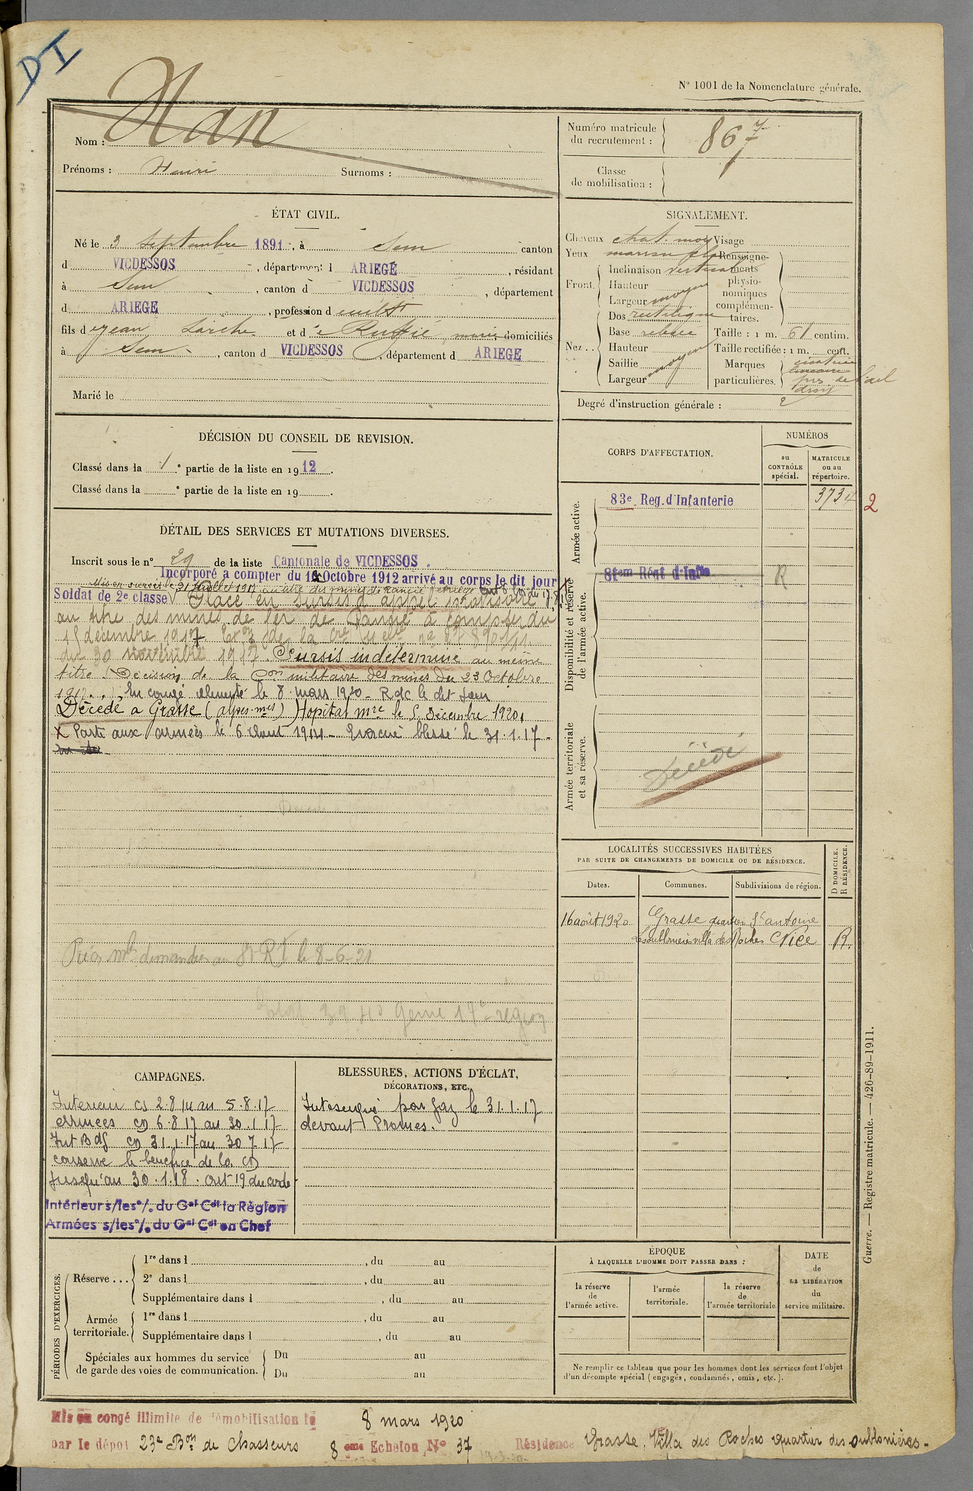 DI
N° 1001 de la Nomenclature générale.
Nom :
Prénoms : Henri Surnoms :
Numéro matricule du recrutement : 867
Classe de mobilisation :
ÉTAT CIVIL.
Né le 3 septembre 1891, à Sem canton
d VICDESSOS, département d ARIEGE, résidant
à Sem, canton d VICDESSOS, département
d ARIEGE, profession d
fils d Jean et d Ruffié, domiciliés
à Sem, canton d VICDESSOS, département d ARIEGE
Marié le
SIGNALEMENT.
Cheveux chat. moy Visage
Yeux marron
Renseignements physionomiques complémentaires.
Front. Inclinaison verticale
Hauteur
Largeur moyen
Nez .. Dos rectiligne
Base relevée
Hauteur
Saillie
Largeur moyen
Taille : 1 m. 61 centim.
Taille rectifiée : 1 m. cent.
Marques particulières. cicatrice
près de l'œil
droit
Degré d'instruction générale : 2
DÉCISION DU CONSEIL DE REVISION.
Classé dans la 1e partie de la liste en 1912.
Classé dans la e partie de la liste en 19 .
CORPS D'AFFECTATION.
NUMÉROS
au CONTRÔLE spécial.
MATRICULE ou au répertoire.
Armée active.
83e Reg. d'Infanterie
2
Disponibilité et réserve de l'armée active.
R
Armée territoriale et sa réserve.
Décédé
DÉTAIL DES SERVICES ET MUTATIONS DIVERSES.
Inscrit sous le n° 29 de la liste Cantonale de VICDESSOS.
Incorporé à compter du 1 Octobre 1912 arrivé au corps le dit jour
Soldat de 2e classe Placé en sursis d'appel
au titre des mines de fer de Rancié à compter du
décembre 1917
du 30 novembre 1917. Sursis indéterminé au même
titre Décision de la Con militaire des mines du 23 Octobre
En congé illimité le 8 mars 1920 - R dc le dit Sem
Décédé à Grasse (alpes-mes) Hôpital mre le 5 Décembre 1920.
X Parti aux armées le 6 Août 1914 - Evacué blessé le 31.1.17 -
le 8-6-21
Génie 17e région
LOCALITÉS SUCCESSIVES HABITÉES
PAR SUITE DE CHANGEMENTS DE DOMICILE OU DE RÉSIDENCE.
Dates. Communes. Subdivisions de région. D DOMICILE. R RÉSIDENCE.
16 août 1920 Grasse quartier St antoine
villa des Roches Nice R.
CAMPAGNES.
Intérieur cd 2.8.14 au 5.8.17
armées cd 6.8.17 au 30.1.17
Int Bdg cd 31.1.17 au 30.7.17
conserve le bénéfice de la cd
jusqu'au 30.1.18. art 19 du code
Intérieur s/les o/. du Gal Cdt la Région
Armées s/les o/. du Gal Cdt en Chef
BLESSURES, ACTIONS D'ÉCLAT,
DÉCORATIONS, ETC.
Intoxiqué par gaz le 31.1.17
devant Prosnes.
PÉRIODES D'EXERCICES.
Réserve ... 1re dans l , du au
2e dans l , du au
Supplémentaire dans l , du au
Armée territoriale. 1re dans l , du au
Supplémentaire dans l , du au
Spéciales aux hommes du service
de garde des voies de communication. Du au
Du au
ÉPOQUE
À LAQUELLE L'HOMME DOIT PASSER DANS :
la réserve de l'armée active.
l'armée territoriale.
la réserve de l'armée territoriale
DATE de LA LIBÉRATION du service militaire.
Ne remplir ce tableau que pour les hommes dont les services font l'objet
d'un décompte spécial (engagés, condamnés, omis, etc.).
Guerre. — Registre matricule. — 426-89-1911.
Mis en congé illimité de démobilisation le 8 mars 1920
par le dépôt 23e Bon de Chasseurs 8eme Echelon, N° 37 Résidence Grasse, Villa des Roches quartier des